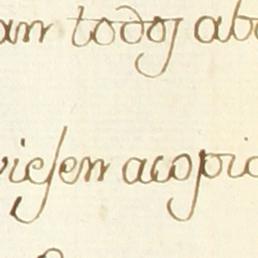 an todos abo
viesen acopio